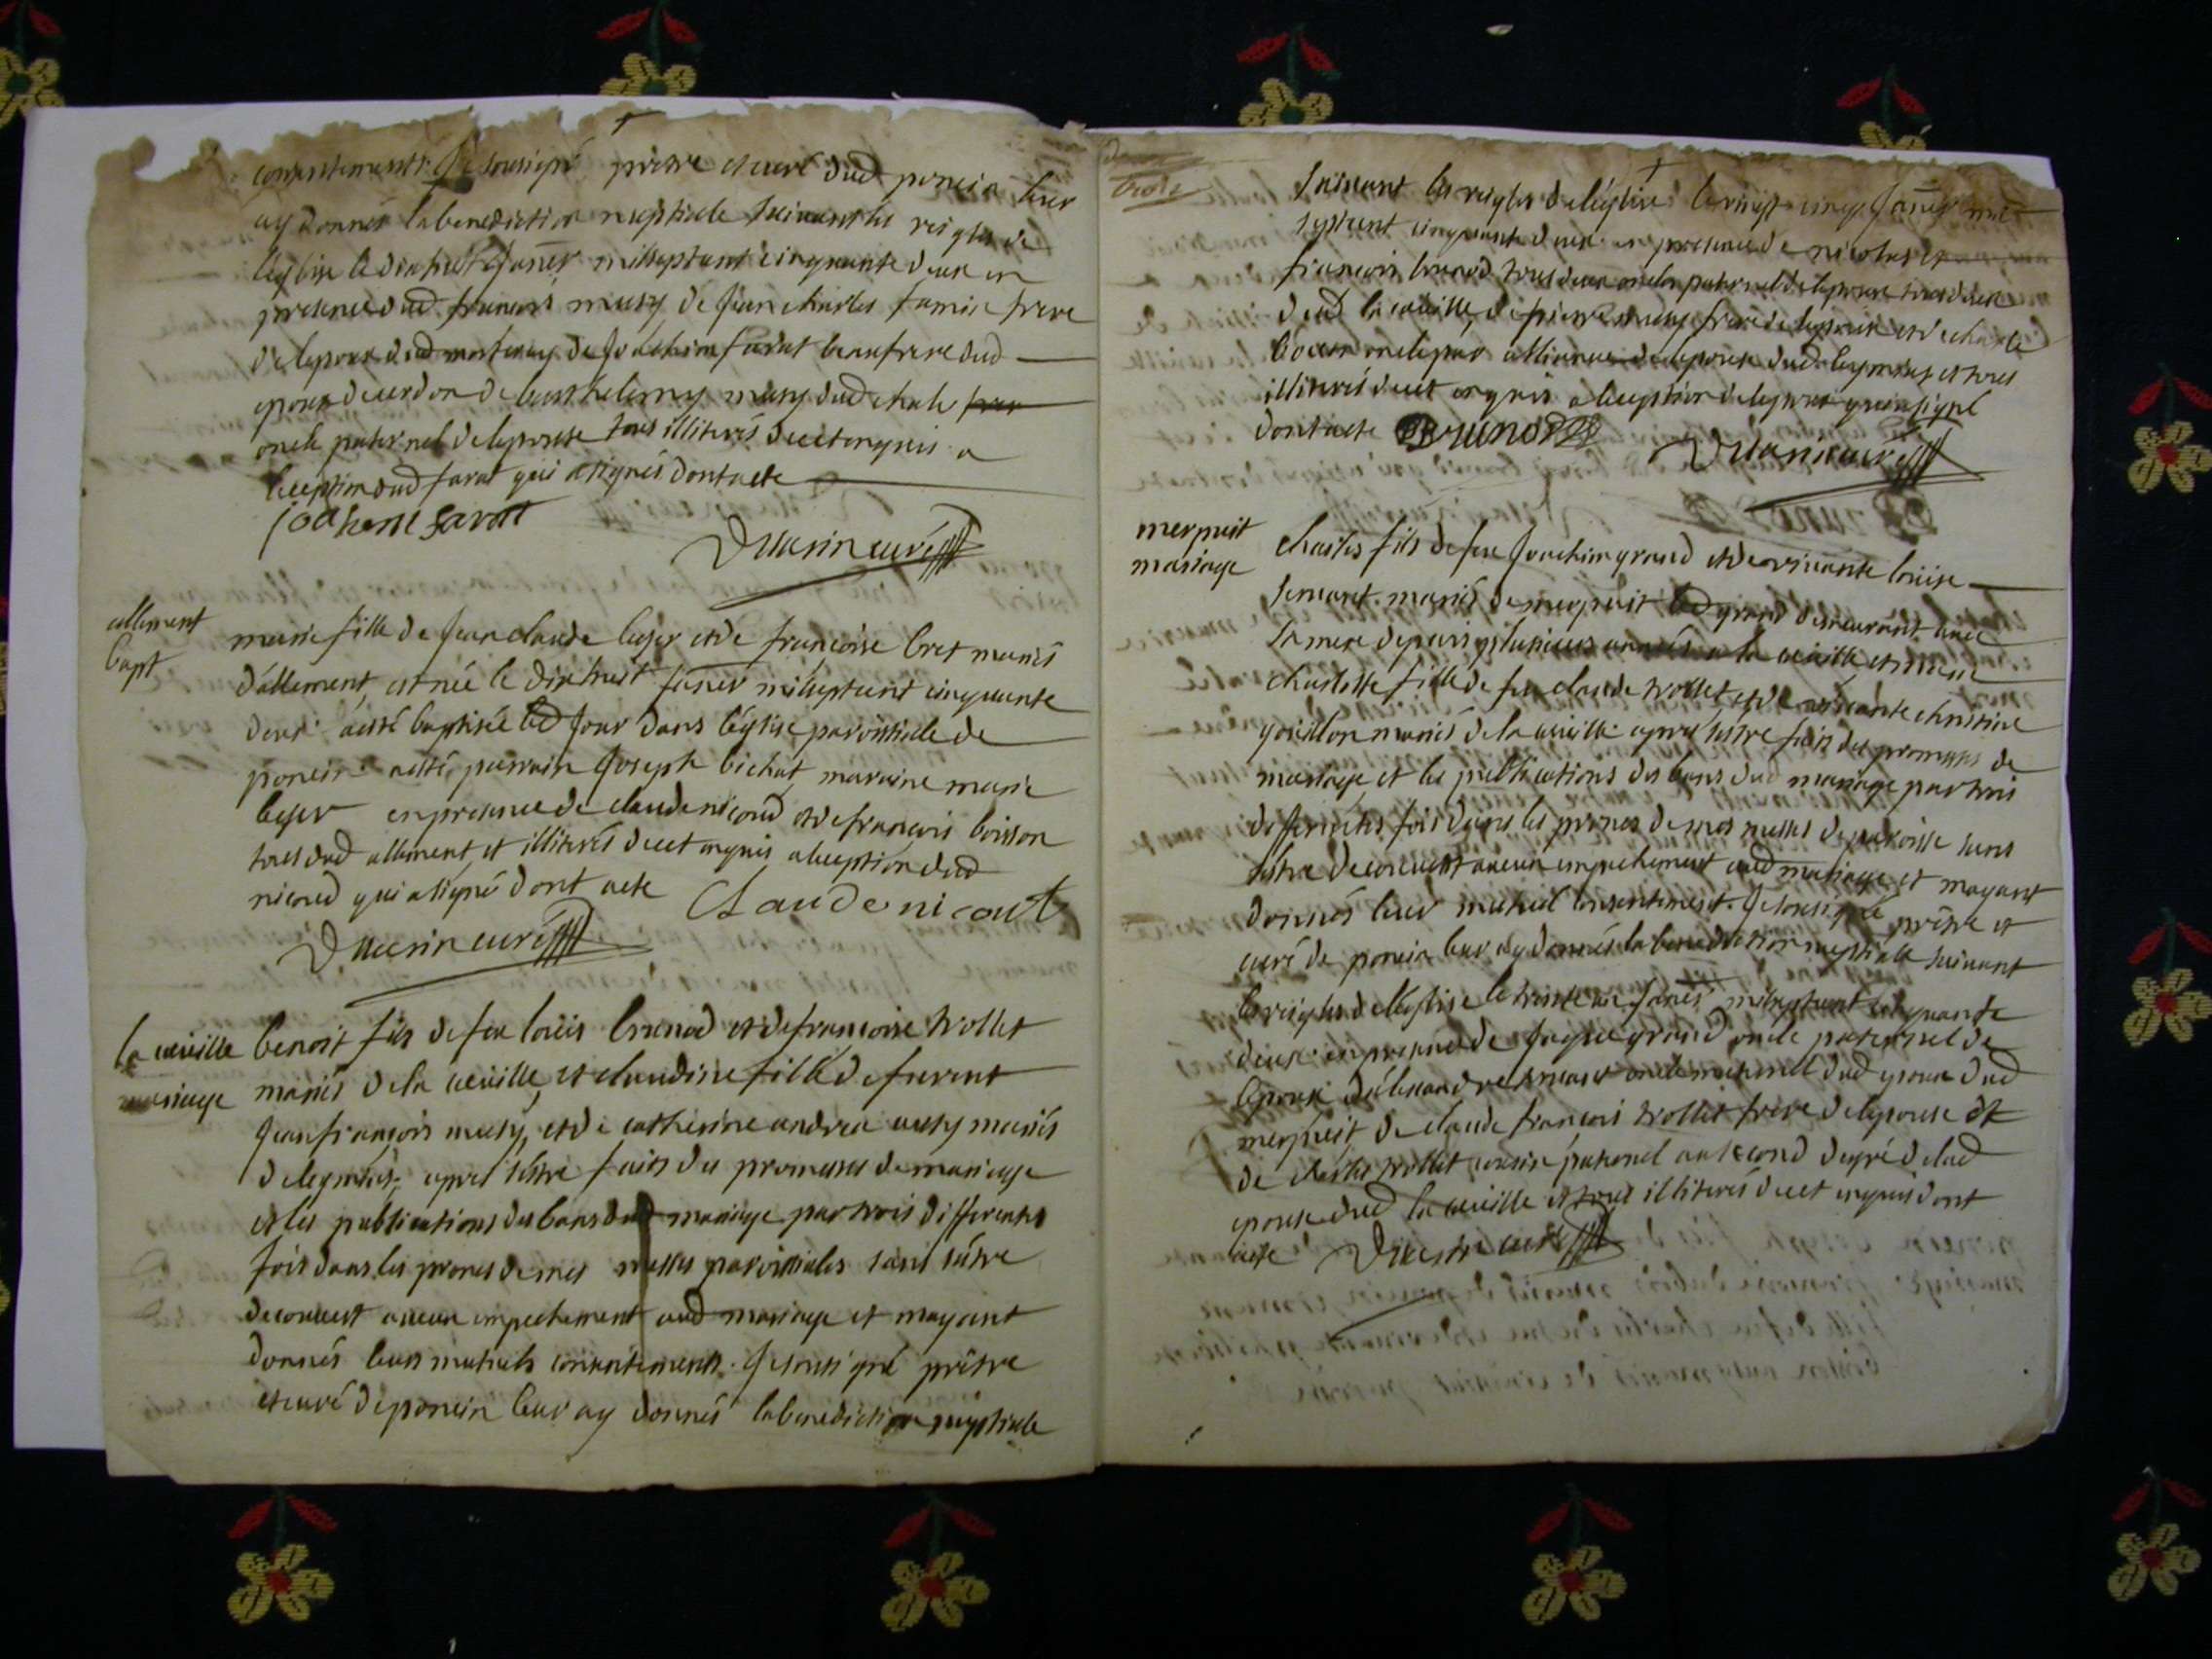 consentements. Je soussigné prêtre et curé dud poncin leur
ay donnés la benediction nuptiale suivant les reigles de
l'eglise le dix huit janer mil sept cent cinquante deux en
presence dud françois musy de jean charles famie frere
de lepoux dud de joachim favat beaufrere dud
epoux de cerdon de barthelemy musy dud
oncle paternel de lepouse tous illiterés de cet enquis a
lexeption dud favat qui a signés dont acte
joachem favat
Duasin curé
allement
bapt
marie fille de jean claude leger et de françoise bret mariés
d'allement, est née le dix huit janer mil sept cent cinquante
deux a esté baptisée led jour dans l'église paroissialle de
poncin a esté parrain joseph bichat, maraine marie
leger en presence de claude nicoud et de françois boisson
tous dud allement, et illiterés de cet enquis a lexeption dud
nicoud qui a signé dont acte Claude nicout
Duasin curé
la cueille
mariage
benoit fils de feu louis brunod et de françoise trollet
mariés de la cueille, et claudine fille de furent
jean françois musy, et de catherine andrea musy mariés
de leymiat, apres s'estre faits des promesses de mariage
et les publications des bans dud mariage par trois differentes
fois dans les prones de mes messes paroissiales sans s'estre
decouvert aucun empechement aud mariage et mayant
donnés leurs mutuels consentements. Je soussigné prêtre
et curé de poncin leur ay donnés la benediction nuptiale
suivant les reigles de l'église le vingt cinq janer mil
sept cent cinquante deux en presence de nicolas et
françois brunod tous deux oncles paternel de lepoux tous deux
dud la cueille, de pierre musy frere de lepouse et de charle
oncle par alliance de lepouse dud leymiat et tous
illiterés de cet enquis a lexeption de lepoux qui a signé
dont acte Brunod
Duasin curé
merpuit
mariage
charles fils de feu joachim grand et de vivante louise
mariés de merpuit led grand demeurant avec
sa mere depuis plusieurs années a la cueille, et
charlotte fille de feu claude trollet et de vivante christine
gouillon mariés de la cueille apres s'estre faits des promesses de
mariage et les publications des bans dud mariage par trois
differentes fois dans les prones de mes messes de paroisse sans
s'estre decouvert aucun empechement aud mariage et mayant
donnés leur mutuel consentement. Je soussigné prêtre et
curé de poncin leur ay donnés la benediction nuptialle suivant
les reigles de l'église le trente un janer mil sept cent cinquante
deux en presence de jaque grand oncle paternel de
lepoux d'alexandre oncle maternel dud epoux dud
merpuit de claude françois trollet frere de lepouse et
de charles trollet cousin paternel au second degré de lad
epouse dud la cueille et tous illiterés de cet enquis dont
acte Duasin curé